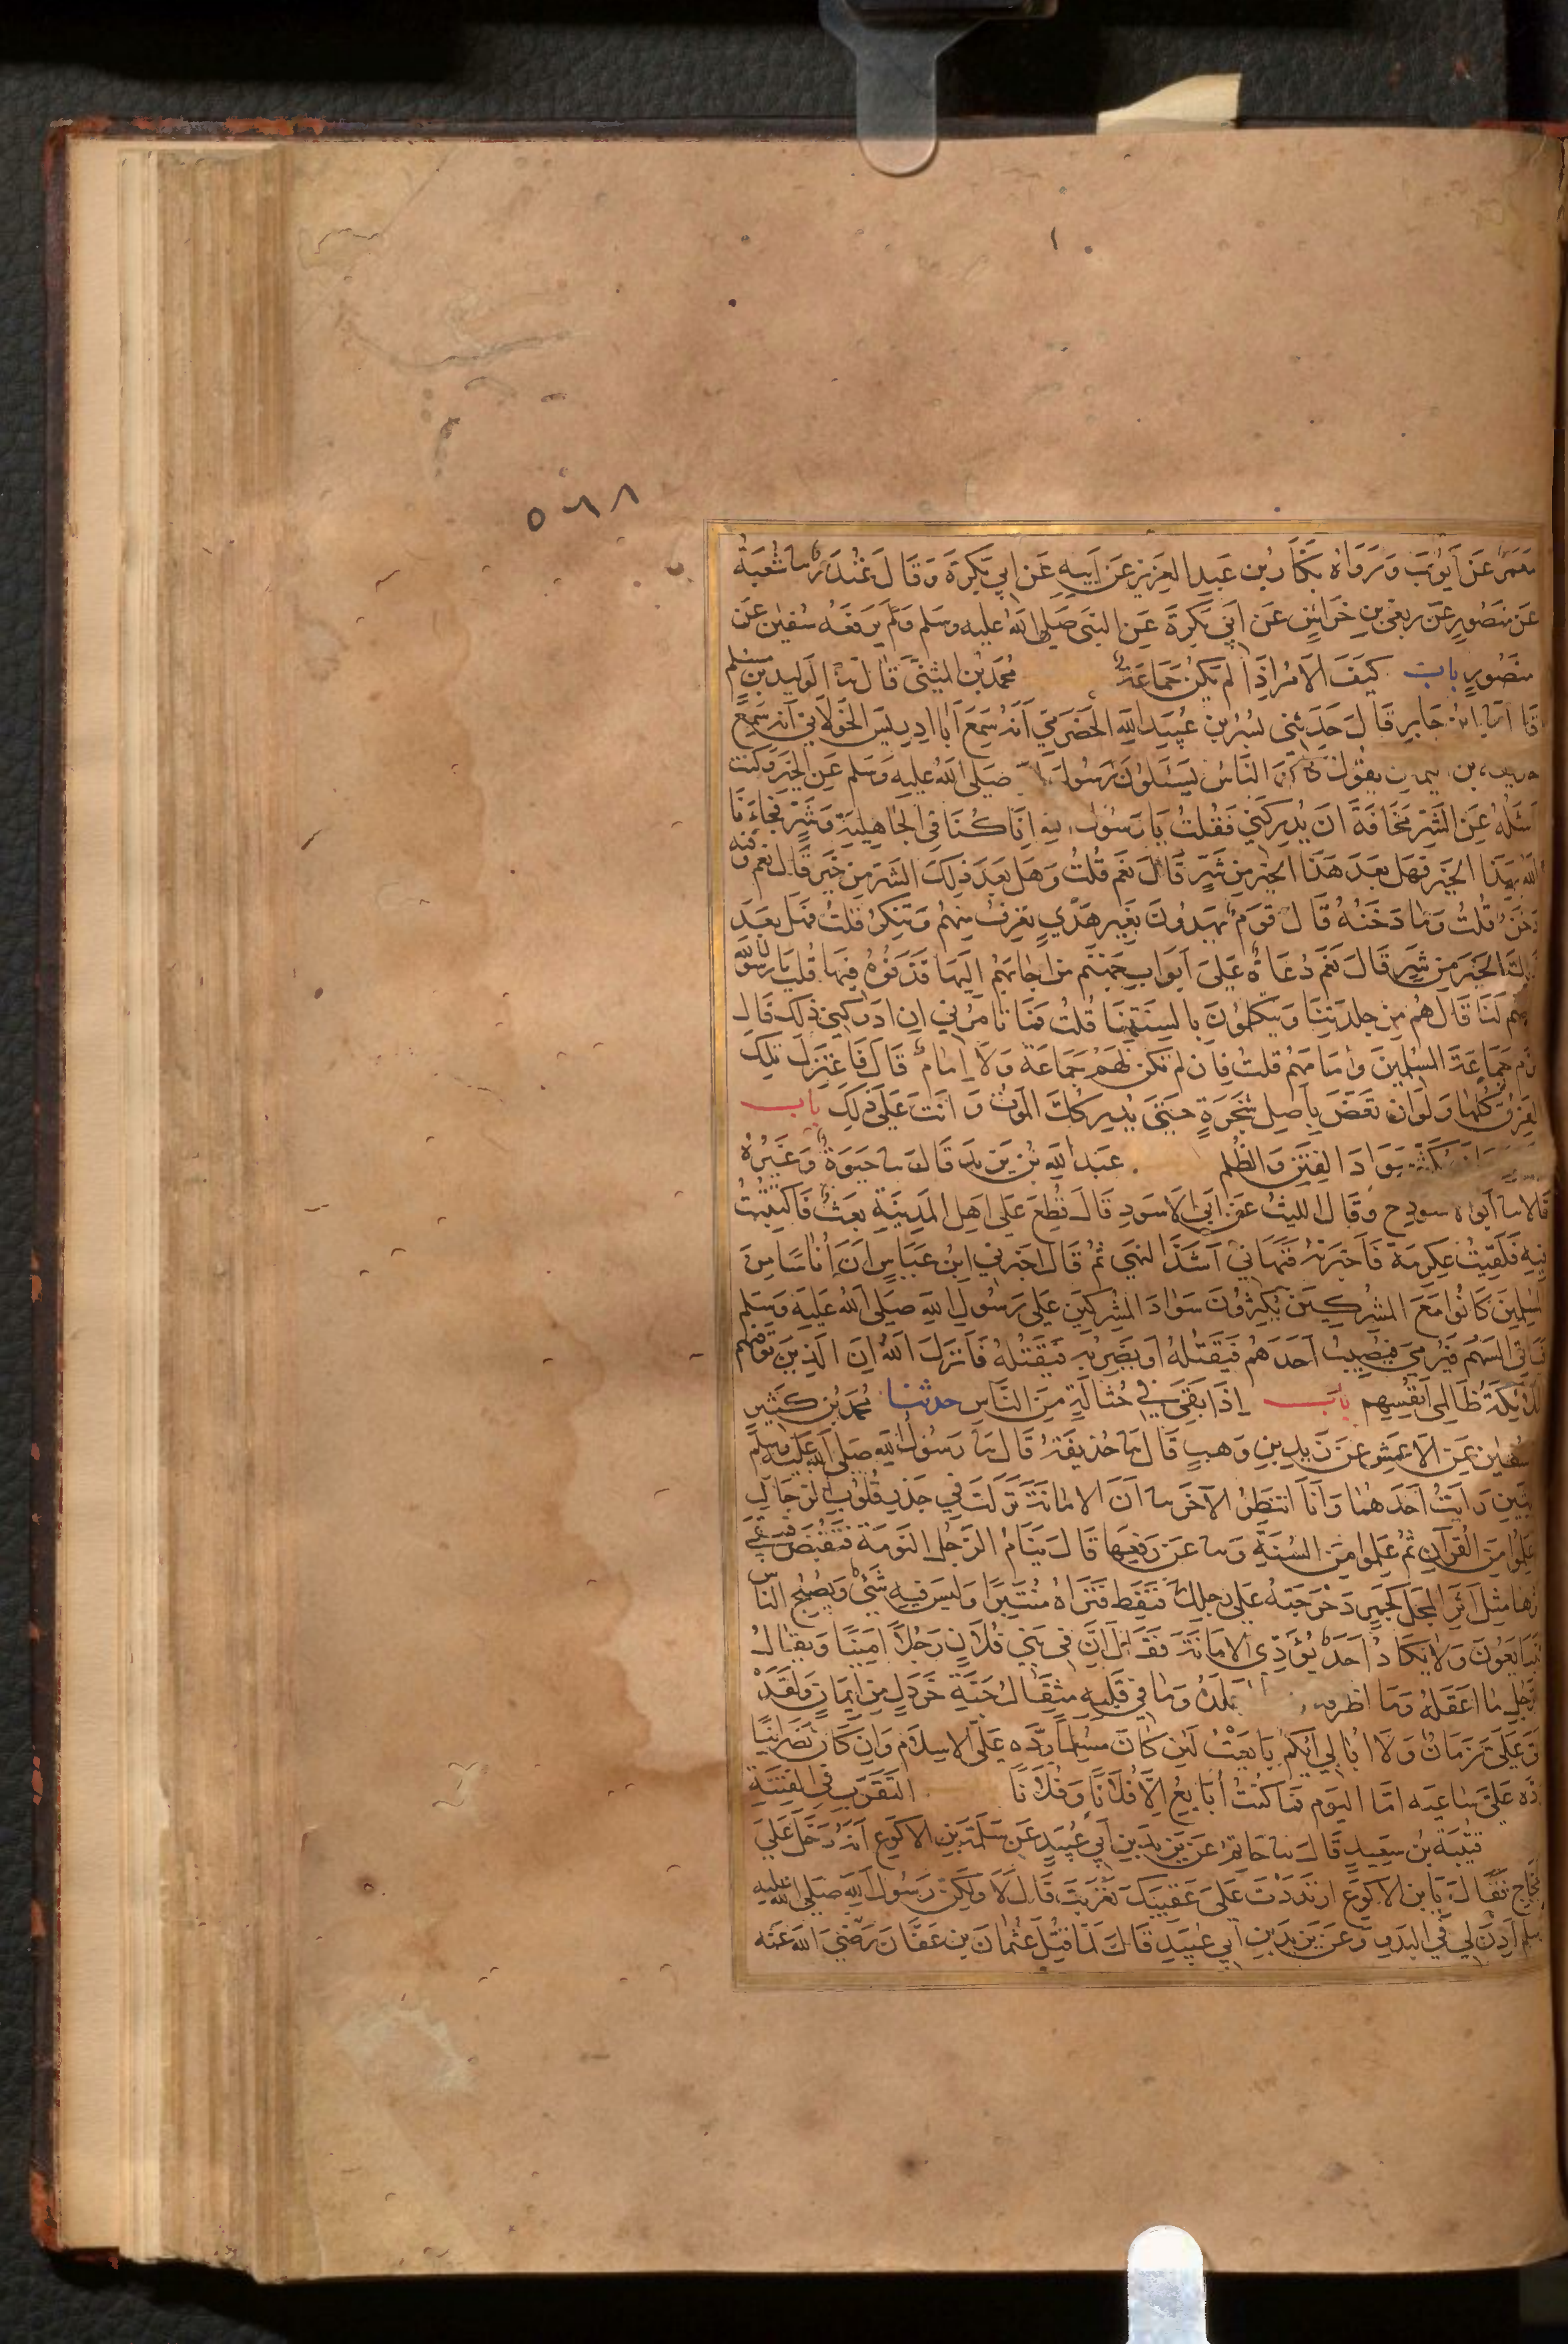 ٥٦٨
معمر عن ايوب ورواه بكار بن عبد العزيز عن ابيه عن ابي بكرة وقال غندر ثنا شعبة
عن منصور عن ربعي بن خراش عن ابي بكرة عن النبي صلى الله عليه وسلم ولم يرفعه سفين عن
منصور باب كيف الامر اذا لم تكن جماعة محمد بن المثنى قال ثنا الوليد بن مسلم
قال ثنا ابن جابر قال حدثني بسر بن عبيد الله الحضرمي انه سمع ابا ادريس الخولاني انه سمع
حذيفة بن اليمان يقول كان الناس يسئلون رسول الله صلى الله عليه وسلم عن الخير وكنت
اسئله عن الشر مخافة ان يدركني فقلت يا رسول الله انا كنا في الجاهلية وشر فجاءنا
الله بهذا الخير فهل بعد هذا الخير من شر قال نعم قلت وهل بعد ذلك الشر من خير قال نعم وفيه
دخن قلت وما دخنه قال قوم يهدون بغير هدي تعرف منهم وتنكر قلت فهل بعد
ذلك الخير من شر قال نعم دعاة على ابواب جهنم من اجابهم اليها قذفوه فيها قلت يا رسول الله
صفهم لنا قال هم من جلدتنا ويتكلمون بالسنتنا قلت فما تامرني ان ادركني ذلك قال
تلزم جماعة المسلمين وامامهم قلت فان لم تكن لهم جماعة ولا امام قال فاعتزل تلك
الفرق كلها ولو ان تعض باصل شجرة حتى يدركك الموت وانت على ذلك باب
من كره ان يكثر سواد الفتن والظلم عبد الله بن يزيد قال ثنا حيوة وغيره
قالا ثنا ابو الاسود ح وقال الليث عن ابي الاسود قال قطع على اهل المدينة بعث فاكتتبت
فيه فلقيت عكرمة فاخبرته فنهاني اشد النهي ثم قال اخبرني ابن عباس ان اناسا من
المسلمين كانوا مع المشركين يكثرون سواد المشركين على رسول الله صلى الله عليه وسلم
فياتي السهم فيرمى فيصيب احدهم فيقتله او يضربه فيقتله فانزل الله ان الذين توفيهم
الملائكة ظالمي انفسهم باب اذا بقي في حثالة من الناس حدثنا محمد بن كثير
سفين عن الاعمش عن زيد بن وهب قال ثنا حذيفة قال ثنا رسول الله صلى الله عليه وسلم
حديثين رايت احدهما وانا انتظر الآخر ثنا ان الامانة نزلت في جذر قلوب الرجال
علموا من القرآن ثم علموا من السنة وثنا عن رفعها قال ينام الرجل النومة فتقبض فيبقى
اثرها مثل اثر المجل كجمر دحرجته على رجلك فنفط فتراه منتبرا وليس فيه شيء ويصبح الناس
يتبايعون ولا يكاد احد يؤدي الامانة فيقال ان في بني فلان رجلا امينا ويقال
للرجل ما اعقله وما اظرفه وما اجلده وما في قلبه مثقال حبة خردل من ايمان ولقد
اتى علي زمان ولا ابالي ايكم بايعت لئن كان مسلما رده علي الاسلام وان كان نصرانيا
رده علي ساعيه اما اليوم فما كنت ابايع الا فلانا وفلانا التعرب في الفتنة
قتيبة بن سعيد قال ثنا حاتم عن يزيد بن ابي عبيد عن سلمة بن الاكوع انه دخل على
الحجاج فقال يا ابن الاكوع ارتددت على عقبيك تعربت قال لا ولكن رسول الله صلى الله عليه
وسلم اذن لي في البدو وعن يزيد بن ابي عبيد قال لما قتل عثمان بن عفان رضي الله عنه